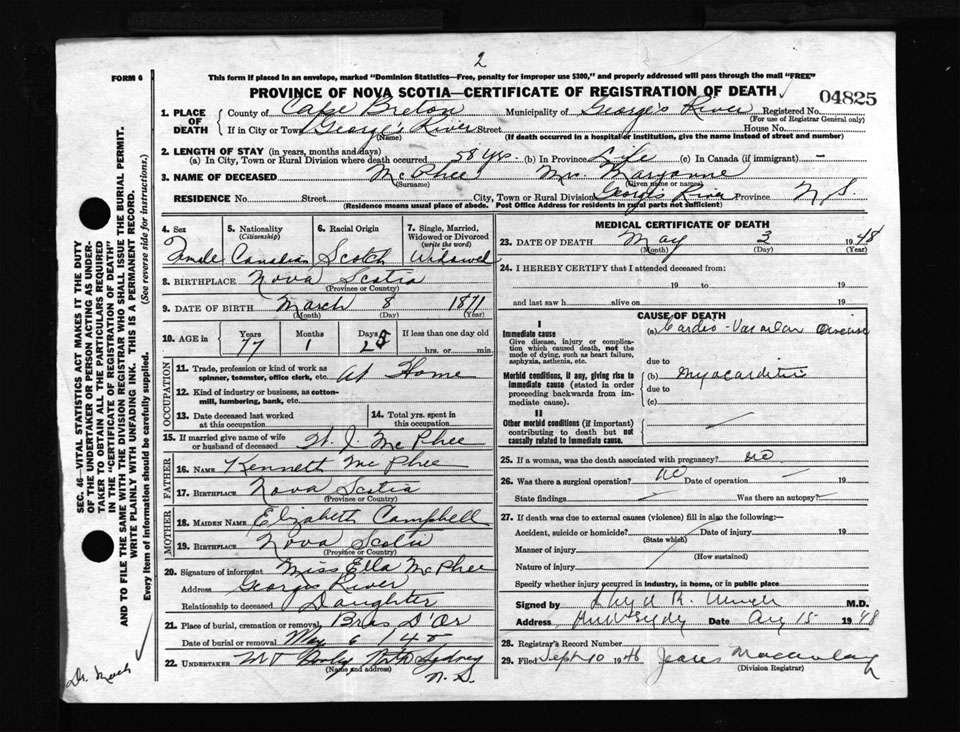 2
FORM 6
This form if placed in an envelope, marked "Dominion Statistics—Free, penalty for improper use $300," and properly addressed will pass through the mail "FREE"
PROVINCE OF NOVA SCOTIA—CERTIFICATE OF REGISTRATION OF DEATH
04825
1. PLACE OF DEATH
County of Cape Breton Municipality of George's River Registered No.
(For use of Registrar General only)
If in City or Town George's River Street House No.
(Name) (If death occurred in a hospital or institution, give the name instead of street and number)
2. LENGTH OF STAY (in years, months and days)
(a) In City, Town or Rural Division where death occurred 58 yrs. (b) In Province Life (c) In Canada (if immigrant) -
3. NAME OF DECEASED McPhee Mrs. Maryanne
(Surname) (Given name or names)
RESIDENCE No. Street City, Town or Rural Division George's River Province N.S.
(Residence means usual place of abode. Post Office Address for residents in rural parts not sufficient)
4. Sex 5. Nationality (Citizenship) 6. Racial Origin 7. Single, Married, Widowed or Divorced (write the word)
Female Canadian Scotch Widowed
8. BIRTHPLACE Nova Scotia
(Province or Country)
9. DATE OF BIRTH March 8 1871
(Month) (Day) (Year)
10. AGE in Years Months Days If less than one day old
77 1 25 hrs. or min.
OCCUPATION
11. Trade, profession or kind of work as spinner, teamster, office clerk, etc. At Home
12. Kind of industry or business, as cotton-mill, lumbering, bank, etc.
13. Date deceased last worked at this occupation 14. Total yrs. spent in this occupation
15. If married give name of wife or husband of deceased J. McPhee
FATHER
16. NAME Kenneth McPhee
17. BIRTHPLACE Nova Scotia
(Province or Country)
MOTHER
18. MAIDEN NAME Elizabeth Campbell
19. BIRTHPLACE Nova Scotia
(Province or Country)
20. Signature of informant Miss Ella McPhee
Address George's River
Relationship to deceased Daughter
21. Place of burial, cremation or removal Bras D'Or
Date of burial or removal May 6
22. UNDERTAKER Sydney
(Name and address) N.S.
MEDICAL CERTIFICATE OF DEATH
23. DATE OF DEATH May 3 1948
(Month) (Day) (Year)
24. I HEREBY CERTIFY that I attended deceased from:
19 to 19
and last saw h alive on 19
CAUSE OF DEATH
I
Immediate cause
Give disease, injury or complication which caused death, not the mode of dying, such as heart failure, asphyxia, asthenia, etc.
(a) Cardio-Vascular Disease
due to
Morbid conditions, if any, giving rise to immediate cause (stated in order proceeding backwards from immediate cause).
(b) Myocarditis
due to
(c)
II
Other morbid conditions (if important) contributing to death but not causally related to immediate cause.
25. If a woman, was the death associated with pregnancy? no
26. Was there a surgical operation? no Date of operation 19
State findings Was there an autopsy?
27. If death was due to external causes (violence) fill in also the following:—
Accident, suicide or homicide? Date of injury 19
(State which)
Manner of injury
(How sustained)
Nature of injury
Specify whether injury occurred in industry, in home, or in public place
Signed by M.D.
Address Date Aug 15 1948
28. Registrar's Record Number
29. Filed Sept 10 1948
(Division Registrar)
SEC. 46—VITAL STATISTICS ACT MAKES IT THE DUTY
OF THE UNDERTAKER OR PERSON ACTING AS UNDER-
TAKER TO OBTAIN ALL THE PARTICULARS REQUIRED
IN THE "CERTIFICATE OF REGISTRATION OF DEATH"
AND TO FILE THE SAME WITH THE DIVISION REGISTRAR WHO SHALL ISSUE THE BURIAL PERMIT.
WRITE PLAINLY WITH UNFADING INK. THIS IS A PERMANENT RECORD.
Every item of information should be carefully supplied. (See reverse side for instructions.)